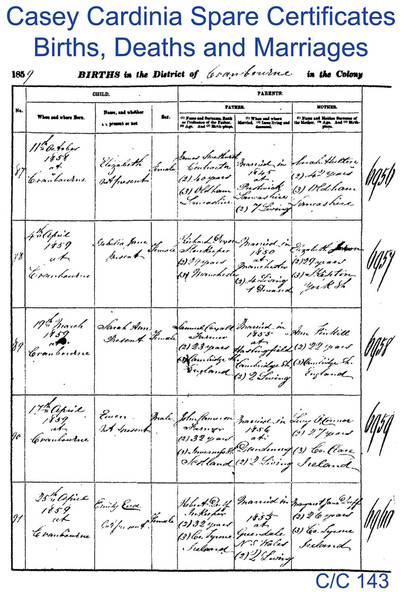 Casey Cardinia Spare Certificates
Births, Deaths and Marriages
1859 BIRTHS in the District of Cranbourne in the Colony
No.
CHILD.
When and where Born.
Name, and whether present or not
Sex.
PARENTS.
FATHER.
(1) Name and Surname, Rank or Profession of the Father. (2) Age. And (3) Birth-place.
(1) When and where Married.
MOTHER.
(1) Name and Maiden Surname of the Mother. (2) Age. And (3) Birth-place.
87
11th October
1858
at
Cranbourne
Elizabeth
not present
Female
James
(2) 40 years
(3) Oldham
Lancashire
Married in
1845
at
Lancashire
(2) 7 Living
Sarah
(3) Oldham
Lancashire
6956
88
4th April
1859
at
Cranbourne
Jane
present
Female
Richard
Storekeeper
(3) Manchester
Married in
1850
at
Manchester
(2) 4 Living
Elizabeth
(2) 29 years
(3)
York Sh
6957
89
19th March
1859
at
Cranbourne
Sarah Ann
Present
Female
Samuel
Farmer
(2) 23 years
(3) Cambridge Sh
England
Married in
1855
at
Haslingfield
Cambridge Sh
(2) 2 Living
Ann
(2) 22 years
(3) Cambridge Sh
England
6958
90
17th April
1859
at
Cranbourne
Ewen
Not present
Male
John Cameron
Farmer
(2) 32 years
(3) Inverness Sh
Scotland
Married in
1856
at
Dandenong
(2) 2 Living
Lucy O'Connor
(2) 27 years
(3) Co. Clare
Ireland
6959
91
25th April
1859
at
Cranbourne
Emily
Not present
Female
Robert Duff
(2) 32 years
(3) Co. Tyrone
Ireland
Married in
1855
at
Greendale
N.S. Wales
(2) 2 Living
Margaret Jane Duff
(2) 26 years
(3) Co. Tyrone
Ireland
6960
C/C 143